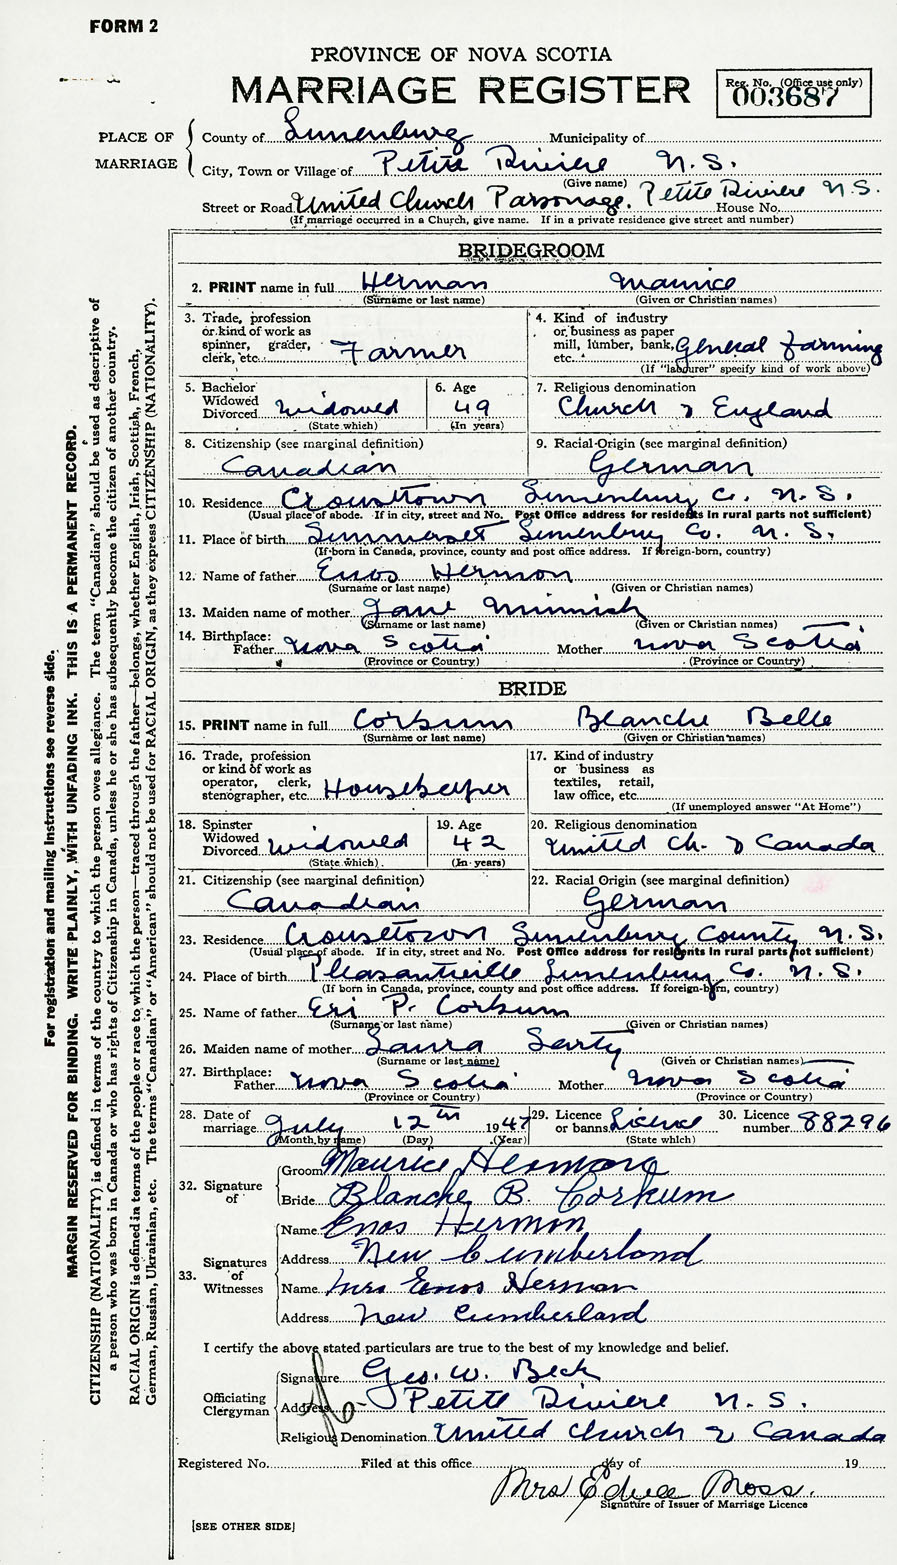 FORM 2
PROVINCE OF NOVA SCOTIA
MARRIAGE REGISTER
Reg. No. (Office use only)
003687
PLACE OF MARRIAGE
County of Lunenburg Municipality of
City, Town or Village of Petite Riviere N.S.
(Give name)
Street or Road United Church Parsonage. Petite Riviere N.S. House No.
(If marriage occurred in a Church, give name. If in a private residence give street and number)
BRIDEGROOM
2. PRINT name in full Herman Maurice
(Surname or last name) (Given or Christian names)
3. Trade, profession or kind of work as spinner, grader, clerk, etc. Farmer
4. Kind of industry or business as paper mill, lumber, bank, etc. General Farming
(If "labourer" specify kind of work above)
5. Bachelor Widowed Divorced Widowed
(State which)
6. Age 49
(In years)
7. Religious denomination
Church of England
8. Citizenship (see marginal definition)
Canadian
9. Racial Origin (see marginal definition)
German
10. Residence Crousetown Lunenburg Co. N.S.
(Usual place of abode. If in city, street and No. Post Office address for residents in rural parts not sufficient)
11. Place of birth Summerset Lunenburg Co. N.S.
(If born in Canada, province, county and post office address. If foreign-born, country)
12. Name of father Enos Hermon
(Surname or last name) (Given or Christian names)
13. Maiden name of mother Jane Minnich
(Surname or last name) (Given or Christian names)
14. Birthplace:
Father Nova Scotia Mother Nova Scotia
(Province or Country) (Province or Country)
BRIDE
15. PRINT name in full Corkum Blanche Belle
(Surname or last name) (Given or Christian names)
16. Trade, profession or kind of work as operator, clerk, stenographer, etc. Housekeeper
17. Kind of industry or business as textiles, retail, law office, etc.
(If unemployed answer "At Home")
18. Spinster Widowed Divorced Widowed
(State which)
19. Age 42
(In years)
20. Religious denomination
United Ch. of Canada
21. Citizenship (see marginal definition)
Canadian
22. Racial Origin (see marginal definition)
German
23. Residence Crousetown Lunenburg County N.S.
(Usual place of abode. If in city, street and No. Post Office address for residents in rural parts not sufficient)
24. Place of birth Pleasantville Lunenburg Co. N.S.
(If born in Canada, province, county and post office address. If foreign-born, country)
25. Name of father Eri P. Corkum
(Surname or last name) (Given or Christian names)
26. Maiden name of mother Laura Sarty
(Surname or last name) (Given or Christian names)
27. Birthplace:
Father Nova Scotia Mother Nova Scotia
(Province or Country) (Province or Country)
28. Date of marriage July 12th 1947
(Month by name) (Day) (Year)
29. Licence or banns Licence
(State which)
30. Licence number 88296
32. Signature of
Groom Maurice Hermon
Bride Blanche B. Corkum
33. Signatures of Witnesses
Name Enos Hermon
Address New Cumberland
Name Mrs Enos Herman
Address New Cumberland
I certify the above stated particulars are true to the best of my knowledge and belief.
Officiating Clergyman
Signature Geo. W. Beck
Address Petite Riviere N.S.
Religious Denomination United Church of Canada
Registered No. Filed at this office day of 19
Mrs Edna Moss.
Signature of Issuer of Marriage Licence
[SEE OTHER SIDE]
For registration and mailing instructions see reverse side.
MARGIN RESERVED FOR BINDING. WRITE PLAINLY, WITH UNFADING INK. THIS IS A PERMANENT RECORD.
CITIZENSHIP (NATIONALITY) is defined in terms of the country to which the person owes allegiance. The term "Canadian" should be used as descriptive of
a person who was born in Canada or who has rights of Citizenship in Canada, unless he or she has subsequently become the citizen of another country.
RACIAL ORIGIN is defined in terms of the people or race to which the person—traced through the father—belongs, whether English, Irish, Scottish, French,
German, Russian, Ukrainian, etc. The terms "Canadian" or "American" should not be used for RACIAL ORIGIN, as they express CITIZENSHIP (NATIONALITY).